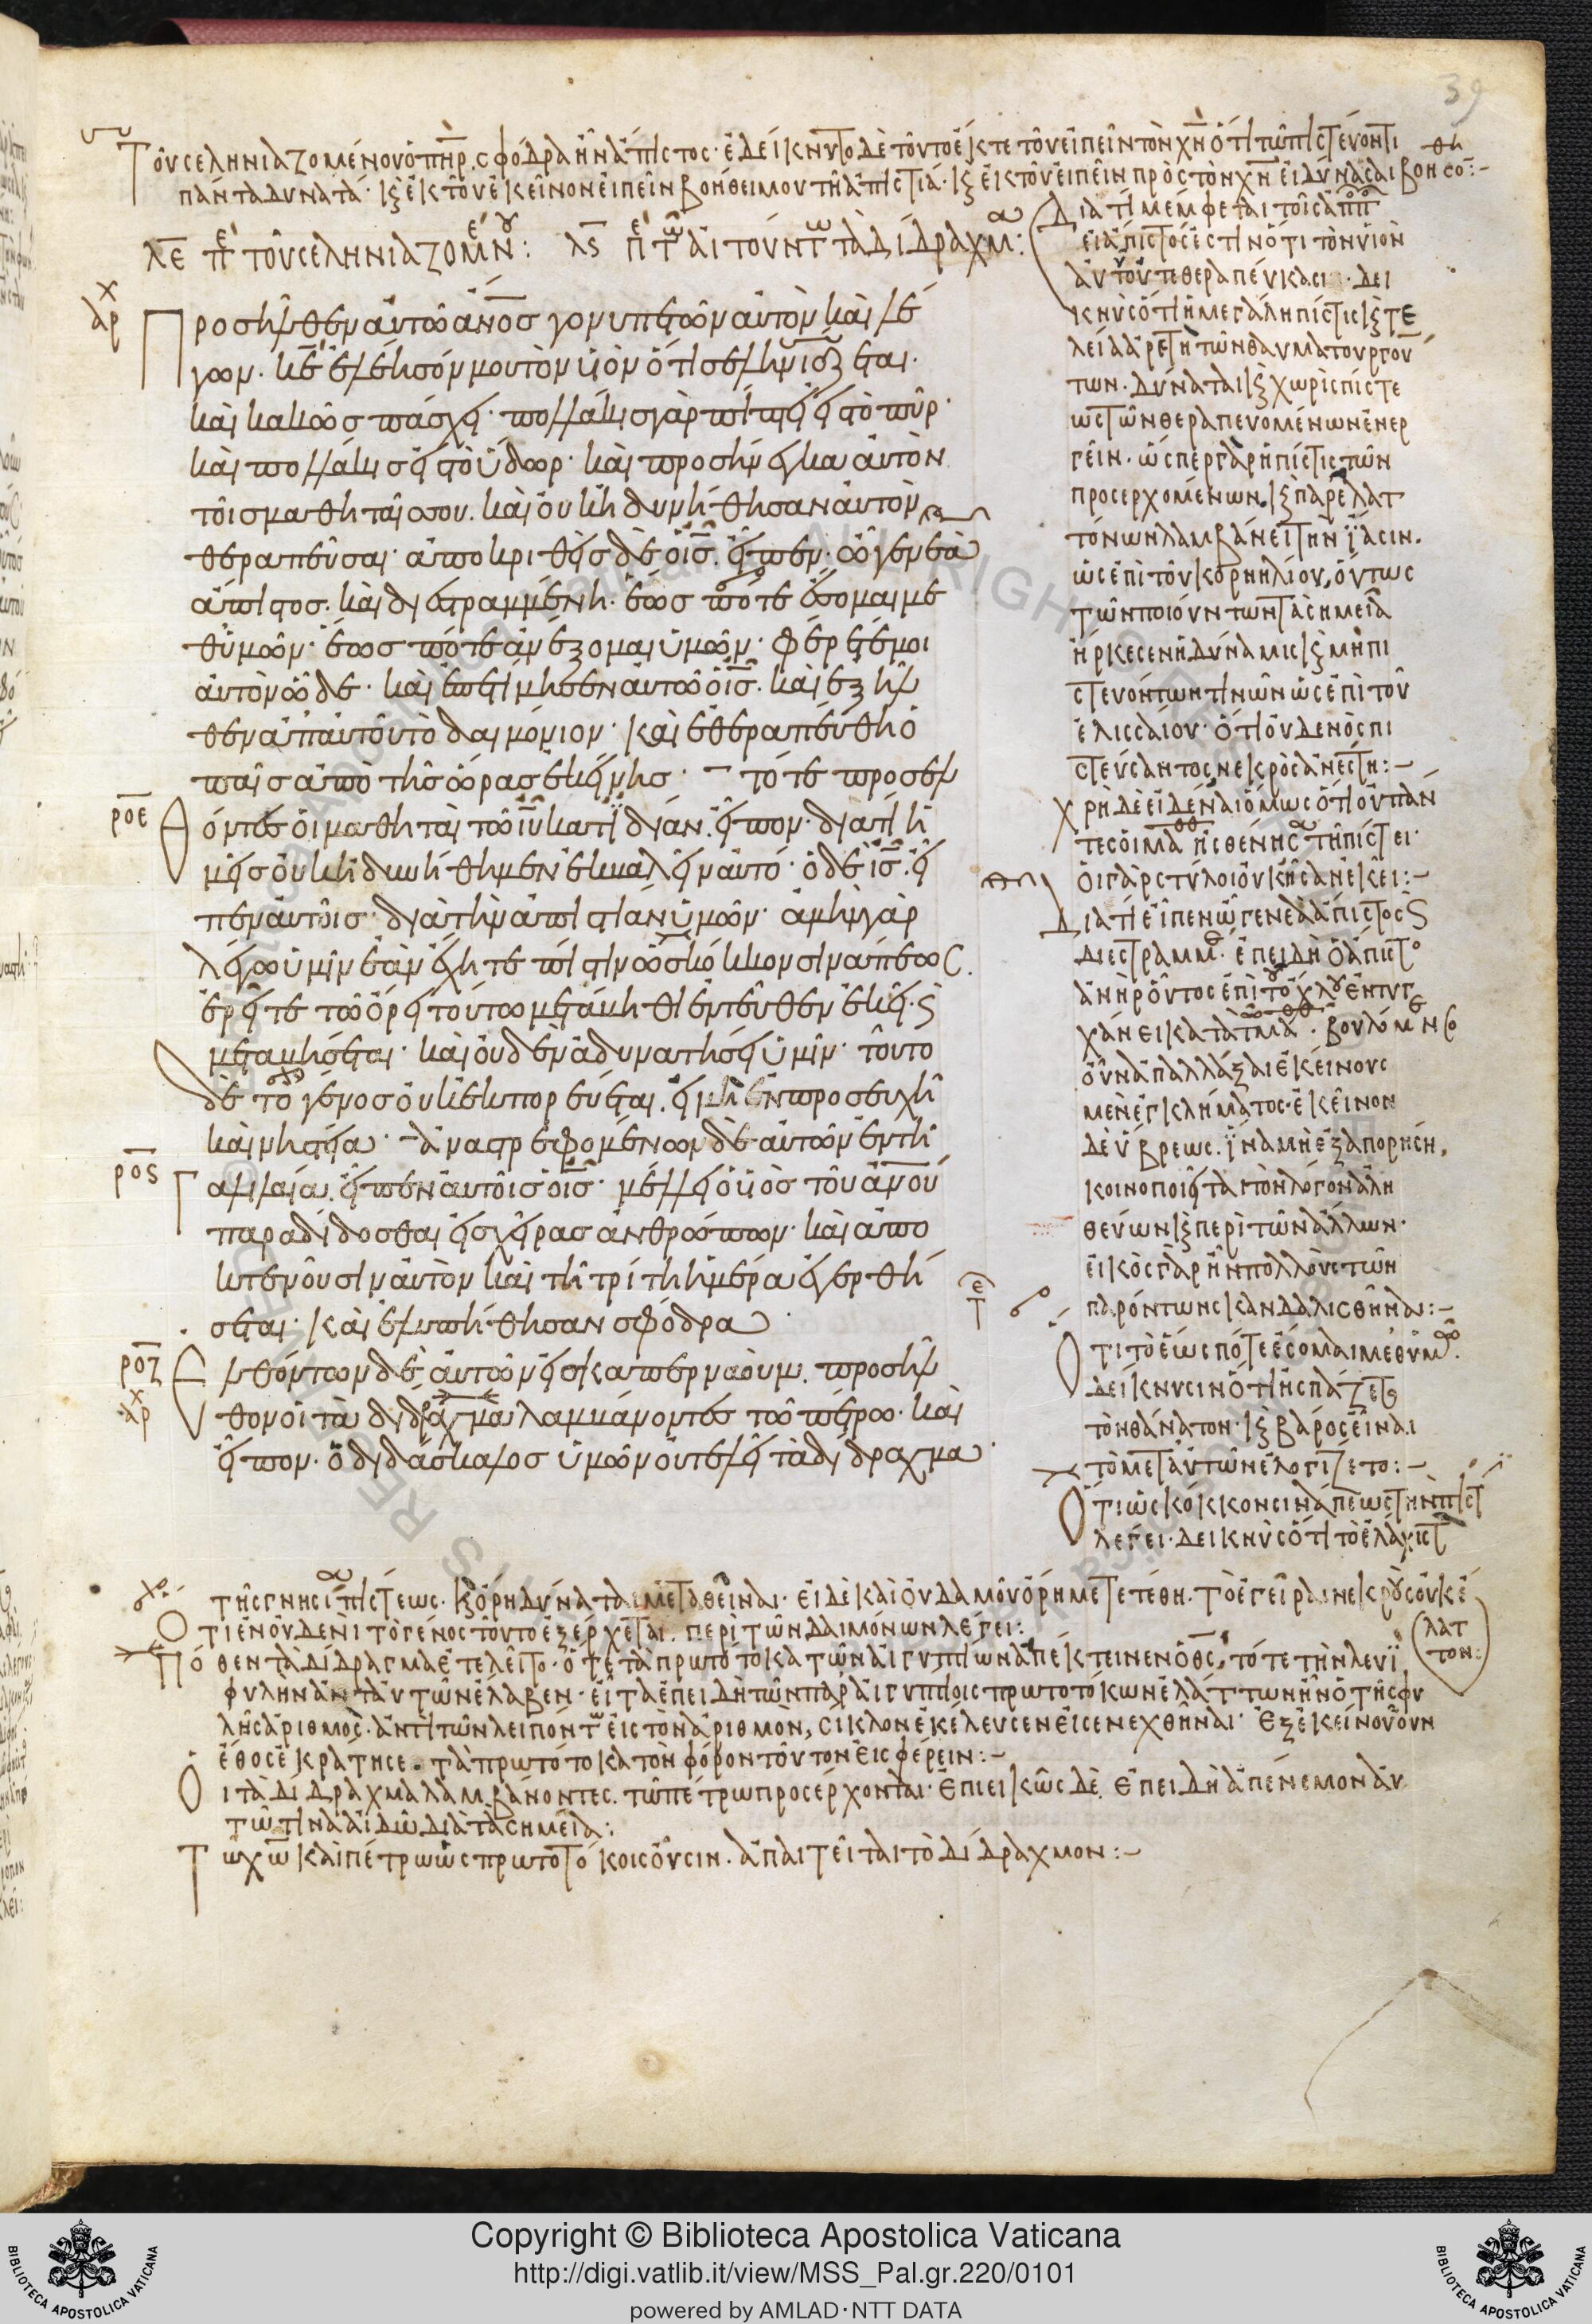 39
Τοῦ σεληνιαζομένου ὁ πηρ σφόδρα ἦν ἄπιστος· ἐδείκνυτο δὲ τοῦτο ἔκ τε τοῦ εἰπεῖν τὸν χν ὅτι τῶ πιστεύοντι
πάντα δυνατά· κ ἐκ τοῦ ἐκεῖνον εἰπεῖν βοήθει μου τῆ ἀπιστία· κ ἐκ τοῦ εἰπεῖν πρὸς τὸν χν εἰ δύνασαι βοησο:-
λε πε τοῦ σεληνιαζομέν: λς πε τ αἰτούντ τὰ δίδραχμα:
Προσῆλθεν αὐτῶ ἄνος γονυπετῶν αὐτὸν καὶ λέ
γων· κε ἐλέησόν μου τὸν υἱὸν ὅτι σεληνιάζεται·
καὶ κακῶς πάσχει· πολλάκις γὰρ πίπτει εἰς τὸ πῦρ·
καὶ πολλάκις εἰς τὸ ὕδωρ· καὶ προσήνεγκα αὐτὸν
τοῖς μαθηταῖς σου. καὶ οὐκ ἠδυνήθησαν αὐτὸν
θεραπεῦσαι· ἀποκριθεὶς δὲ ὁ ις. εἶπεν· ὦ γενεὰ
ἄπιστος· καὶ διεστραμμένη· ἕως πότε ἔσομαι με
θ' ὑμῶν· ἕως πότε ἀνέξομαι ὑμῶν· φέρετέ μοι
αὐτὸν ὧδε· καὶ ἐπετίμησεν αὐτῶ ὁ ις. καὶ ἐξῆλ
θεν ἀπ' αὐτοῦ τὸ δαιμόνιον· καὶ ἐθεραπεύθη ὁ
παῖς ἀπὸ τῆς ὥρας ἐκείνης· τότε προσελ
ροε
θόντες οἱ μαθηταὶ τῶ ιυ κατ' ἰδίαν. εἶπον· διατί ἡ
μεῖς οὐκ ἠδυνήθημεν ἐκβαλεῖν αὐτό· ὁ δὲ ις. εἶ
πεν αὐτοῖς· διὰ τὴν ἀπιστίαν ὑμῶν· ἀμὴν γὰρ
λέγω ὑμῖν ἐὰν ἔχητε πίστιν ὡς κόκκον σινάπεως.
ἐρεῖτε τῶ ὄρει τούτω μετάβηθι ἐντεῦθεν ἐκεῖ· κ
μεταβήσεται· καὶ οὐδὲν ἀδυνατήσει ὑμῖν· τοῦτο
δὲ τὸ γένος οὐκ ἐκπορεύεται. εἰ μὴ ἐν προσευχῆ
καὶ νηστεία· ἀναστρεφομένων δὲ αὐτῶν ἐν τῆ
ρος
γαλιλαία. εἶπεν αὐτοῖς ὁ ις· μέλλει ὁ υἱὸς τοῦ ανου
παραδίδοσθαι εἰς χεῖρας ἀνθρώπων· καὶ ἀπο
κτενοῦσιν αὐτὸν καὶ τῆ τρίτη ἡμέρα ἐγερθή
σεται· καὶ ἐλυπήθησαν σφόδρα
ροζ
Ἐλθόντων δὲ αὐτῶν εἰς καπερναούμ. προσῆλ
θον οἱ τὰ δίδραχμα λαμβάνοντες τῶ πέτρω· καὶ
εἶπον· ὁ διδάσκαλος ὑμῶν οὐ τελεῖ τὰ δίδραχμα
Διατί μέμφεται τοῖς
εἰ ἄπιστός ἐστιν ὅτι τὸν υἱὸν
αὐτοῦ τεθεραπεύκασι· δει
κνὺς ὅτι ἡ μεγάλη πίστις κ τε
λεία ἀρετὴ τῶν θαυματουργού
των. δύναται κ χωρὶς πίστε
ως τῶν θεραπευομένων ἐνερ
γεῖν. ὥσπερ γὰρ ἡ πίστις τῶν
προσερχομένων, κ παρ' ἐλατ
τόνων λαμβάνει τὴν ἴασιν.
ὡς ἐπὶ τοῦ κορνηλίου, οὕτως
τῶν ποιούντων τὰ σημεῖα
ἤρκεσεν ἡ δύναμις κ μὴ πι
στευόντων τινῶν ὡς ἐπὶ τοῦ
ἐλισσαίου· ὅτι οὐδενὸς πι
στεύσαντος νεκρὸς ἀνέστη:-
χρὴ δὲ εἰδέναι ὅμως ὅτι οὐ πάν
τες οἱ μαθ ἠσθένησ τῆ πίστει·
οἱ γὰρ στῦλοι οὐκ ἦσαν ἐκεῖ:-
Διατί εἶπεν ὦ γενεὰ ἄπιστος κ
διεστραμμ· ἐπειδὴ ὁ ἄπιστο
ἀνὴρ οὗτος ἐπὶ τοῦ ὄχλου ἐντυγ
χάνει κατὰ τῶν μαθ· βουλόμενο
οὖν ἀπαλλάξαι ἐκείνους
μὲν ἐγκλήματος· ἐκεῖνον
δὲ ὕβρεως. ἵνα μὴ ἐξαπορήση,
κοινοποιεῖται τὸν λόγον ἀλη
θεύων κ περὶ τῶν ἄλλων·
εἰκὸς γὰρ ἦν πολλοὺς τῶν
παρόντων σκανδαλισθῆναι:-
Ὅτι τὸ ἕως πότε ἔσομαι μεθ' ὑμ·
δείκνυσιν ὅτι ἠσπάζετο
τὸν θάνατον· κ βάρος εἶναι
τὸ μετ' αὐτῶν ἐλογίζετο:-
Ὅτι ὡς κόκκον σινάπεως τὴν πίστ
λέγει· δεικνὺς ὅτι τὸ ἐλάχιστ
τῆς γνησί πίστεως. κ ὄρη δύναται μεταθεῖναι· εἰ δὲ καὶ οὐδαμοῦ ὄρη μετετέθη. τὸ ἐγεῖραι νεκροὺς οὐκ ἔ
λαττον:
Ὅτι ἐν οὐδενὶ τὸ γένος τοῦτο ἐξέρχεται. περὶ τῶν δαιμόνων λέγει:
Πόθεν τὰ δίδραγμα ἐτελεῖτο· ὅτε τὰ πρωτότοκα τῶν αἰγυπτίων ἀπέκτεινεν ὁ θς, τότε τὴν λευῒ
φυλὴν ἀντ' αὐτῶν ἔλαβεν· εἶτα ἐπειδὴ τῶν παρ' αἰγυπτίοις πρωτοτόκων ἐλάττων ἦν ὁ τῆς φυ
λῆς ἀριθμὸς· ἀντὶ τῶν λειπόντ εἰς τὸν ἀριθμὸν, σίκλον ἐκέλευσεν εἰσενεχθῆναι· ἐξ ἐκείνου οὖν
ἔθος ἐκράτησε. τὰ πρωτότοκα τὸν φόρον τοῦτον εἰσφέρειν:-
Οἱ τὰ δίδραχμα λαμβάνοντες. τῶ πέτρω προσέρχονται· ἐπιεικῶς δὲ. ἐπειδὴ ἀπένεμον αὐ
τῶ τινὰ αἰδῶ διὰ τὰ σημεῖα:
Τῶ χω καὶ πέτρω ὡς πρωτοτόκοις οὖσιν. ἀπαιτεῖται τὸ δίδραχμον:-
Copyright © Biblioteca Apostolica Vaticana
http://digi.vatlib.it/view/MSS_Pal.gr.220/0101
powered by AMLAD·NTT DATA
BIBLIOTECA APOSTOLICA VATICANA
BIBLIOTECA APOSTOLICA VATICANA